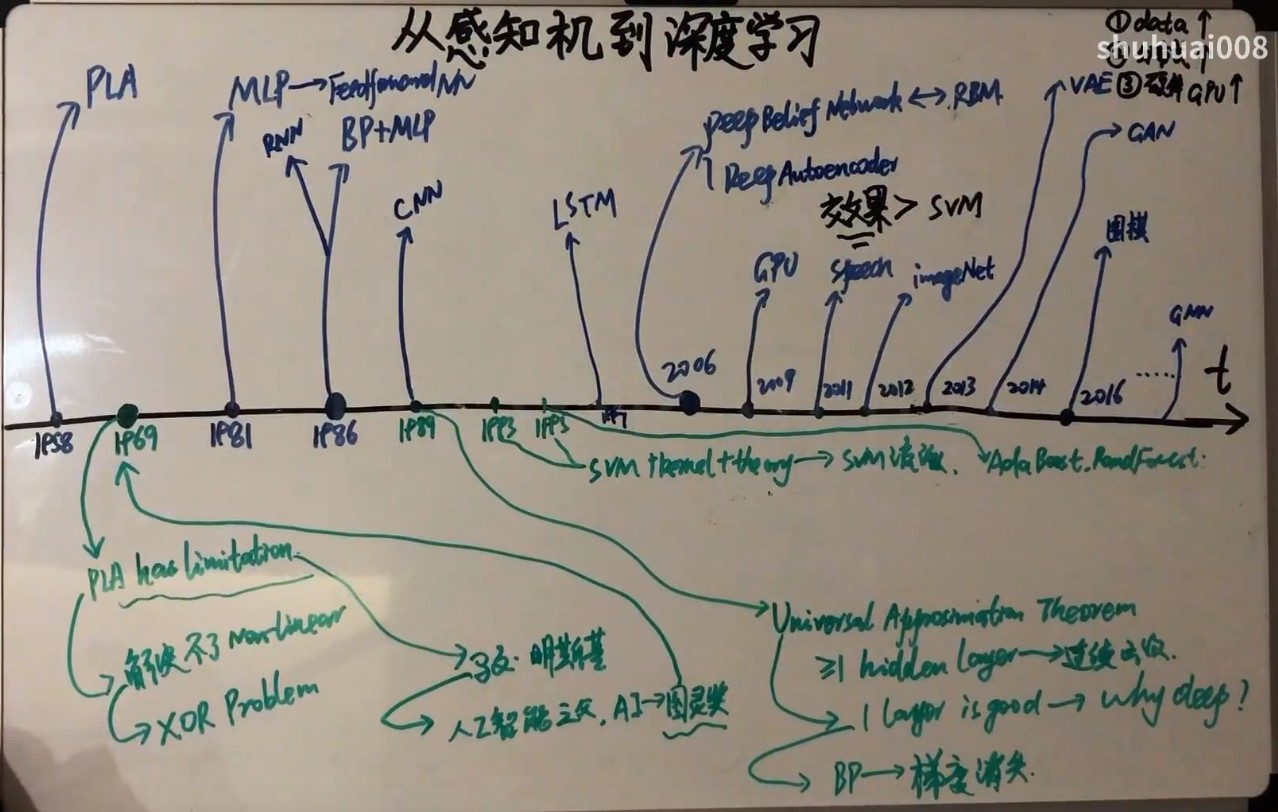 从感知机到深度学习
① data ↑
shuhuai008
③ 硬件 GPU ↑
PLA
MLP → Feedforward NN
RNN
BP+MLP
CNN
LSTM
Deep Belief Network ↔ RBM
Deep Autoencoder
效果 > SVM
GPU
speech
imageNet
VAE
GAN
围棋
GNN
t
1958
1969
1981
1986
1989
1993
1995
1997
2006
2009
2011
2012
2013
2014
2016
......
SVM + kernel + theory → SVM流派.
AdaBoost. RandForest.
PLA has limitation
解决不了 non-linear
XOR Problem
明斯基
人工智能之父. AI → 图灵奖
Universal Approximation Theorem
≥1 hidden layer → 连续函数.
1 layer is good → why deep?
BP → 梯度消失.